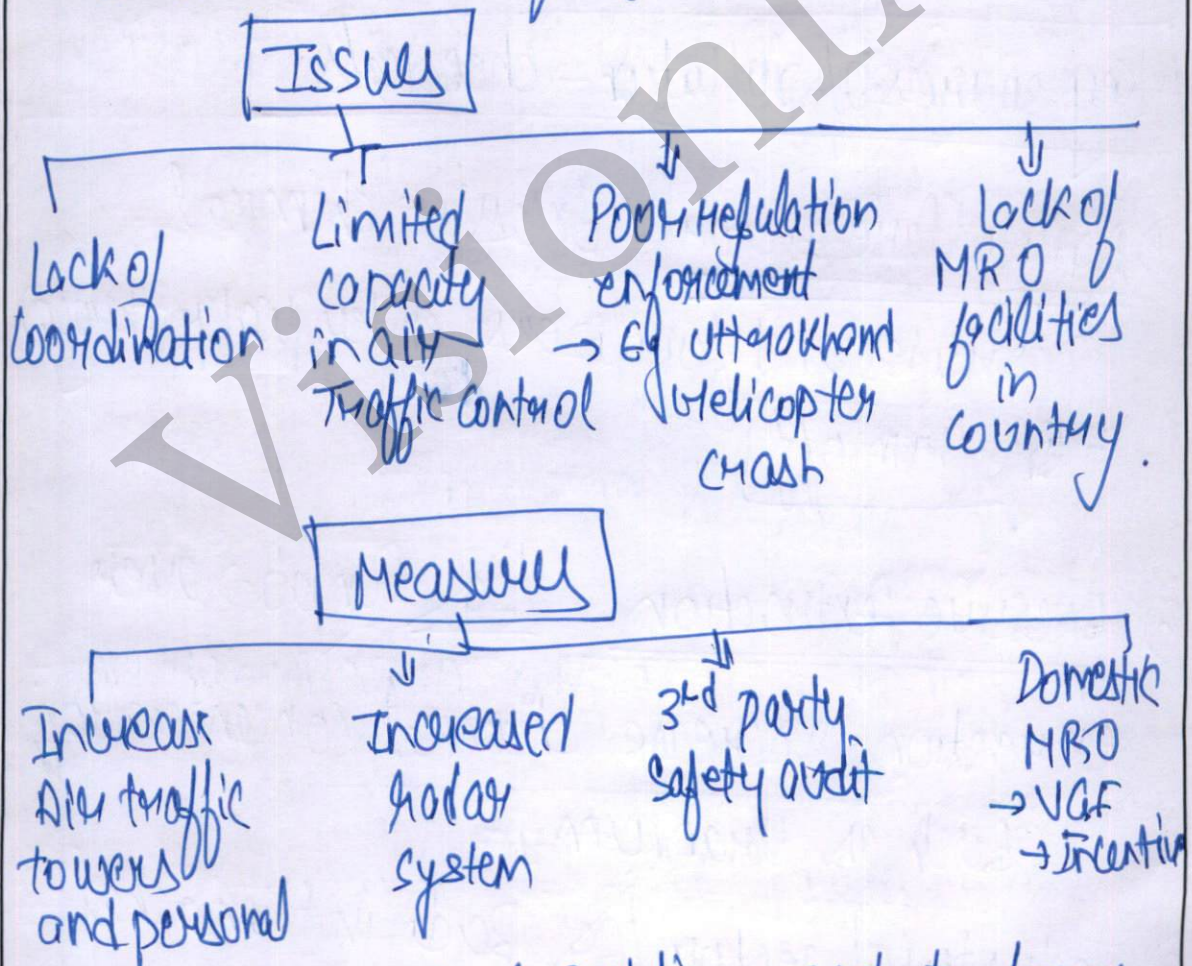 Issues
Lack of
Coordination
Limited
capacity
in air
Traffic control
Poor regulation
enforcement
→ Eg Uttrakhand
Helicopter
crash
Lack of
MRO
facilities
in
country.
Measures
Increase
Air traffic
towers
and personal
Increased
radar
system
3rd party
safety audit
Domestic
MRO
→ VGF
→ Incentive
Vision